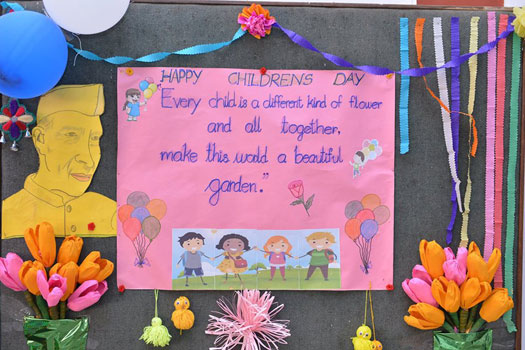 HAPPY CHILDREN'S DAY
Every child is a different kind of flower
and all together,
make this world a beautiful
garden."